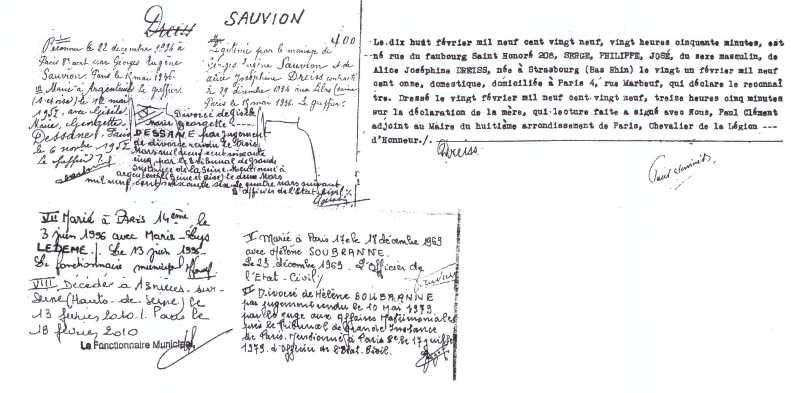 Dreiss SAUVION
Reconnu le 22 décembre 1934 à
Paris 8e art par Georges Eugène
Sauvion Paris le 15 mai 1936.
Le greffier
III Marié à Argenteuil
(S. et Oise) le 12 mai
1951 avec Gisèle
Marie, Georgette
Dessane. Paris
le 6 nov 1952
400
Légitimé par le mariage de
Georges Eugène Sauvion et de
Alice Joséphine Dreiss contracté
le 29 décembre 1934 aux Lilas (Seine
Paris le 15 mai 1936. Le greffier.
IV Divorcé de Gisèle
Marie Georgette
DESSANE par jugement
de divorce rendu le trois
Mars mil neuf cent soixante
cinq, par le tribunal de Grande
Instance de la Seine. Mentionné à
Argenteuil (Seine et Oise) le deux Mars
mil neuf cent soixante six. Le quatre Mars suivant
L'officier de l'Etat-Civil
Le dix huit février mil neuf cent vingt neuf, vingt heures cinquante minutes, est
né rue du faubourg Saint Honoré 208, SERGE, PHILIPPE, JOSÉ, du sexe masculin, de
Alice Joséphine DREISS, née à Strasbourg (Bas Rhin) le vingt un février mil neuf
cent onze, domestique, domiciliée à Paris 4, rue Marbeuf, qui déclare le reconnaî
tre. Dressé le vingt février mil neuf cent vingt neuf, treize heures cinq minutes
sur la déclaration de la mère, qui lecture faite a signé avec Nous, Paul Clément
adjoint au Maire du huitième arrondissement de Paris, Chevalier de la Légion ---
d'Honneur./.
Dreiss
VII Marié à Paris 14ème le
3 juin 1996 avec Marie-Lys
LEDEME./. Le 13 juin 1996
Le fonctionnaire municipal
VIII Décédé à Asnières-sur-
Seine (Hauts-de-Seine) le
13 février 2010./. Paris le
18 février 2010
Le Fonctionnaire Municipal
V Marié à Paris 17e le 18 décembre 1969
avec Hélène SOUBRANNE.
Le 23 décembre 1969. L'Officier de
l'Etat-Civil/
VI Divorcé de Hélène SOUBRANNE
par jugement rendu le 10 Mai 1979
par le Juge aux Affaires Matrimoniales
près le Tribunal de Grande Instance
de Paris. Mentionné à Paris 8e le 17 juillet
1979. L'Officier de l'Etat Civil.